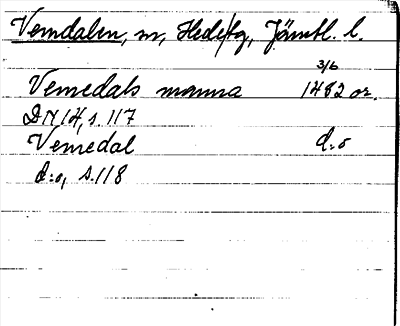 Vemdalen, sn, Hede tg, Jämtl. l.
3/6
Vemedals manna 1482 or.
DN 14, s. 117
Vemedal d:o
d:o, s. 118